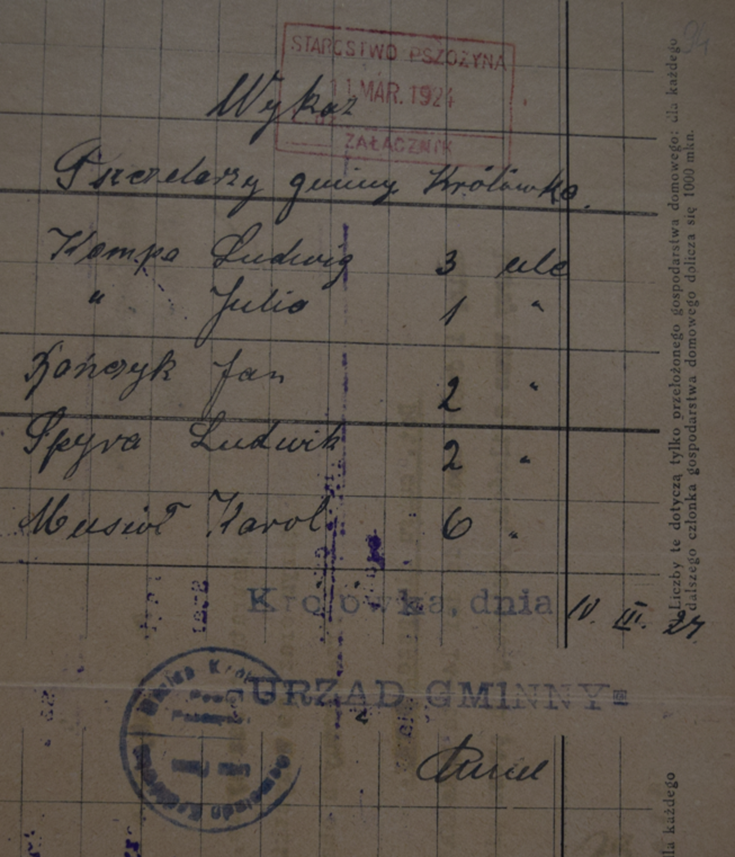 94
STAROSTWO PSZCZYNA
11 MAR. 1924
ZAŁĄCZNIK
Wykaz
Pszczelarzy gminy Królówka.
Kompa Ludwig 3 ule
" Julia 1 "
Kończyk Jan 2 "
Spyra Ludwik 2 "
Musioł Karol 6 "
Królówka, dnia 10. III. 24
URZĄD GMINNY
Liczby te dotyczą tylko przełożonego gospodarstwa domowego: dla każdego
dalszego członka gospodarstwa domowego dolicza się 1000 mkn.
dla każdego